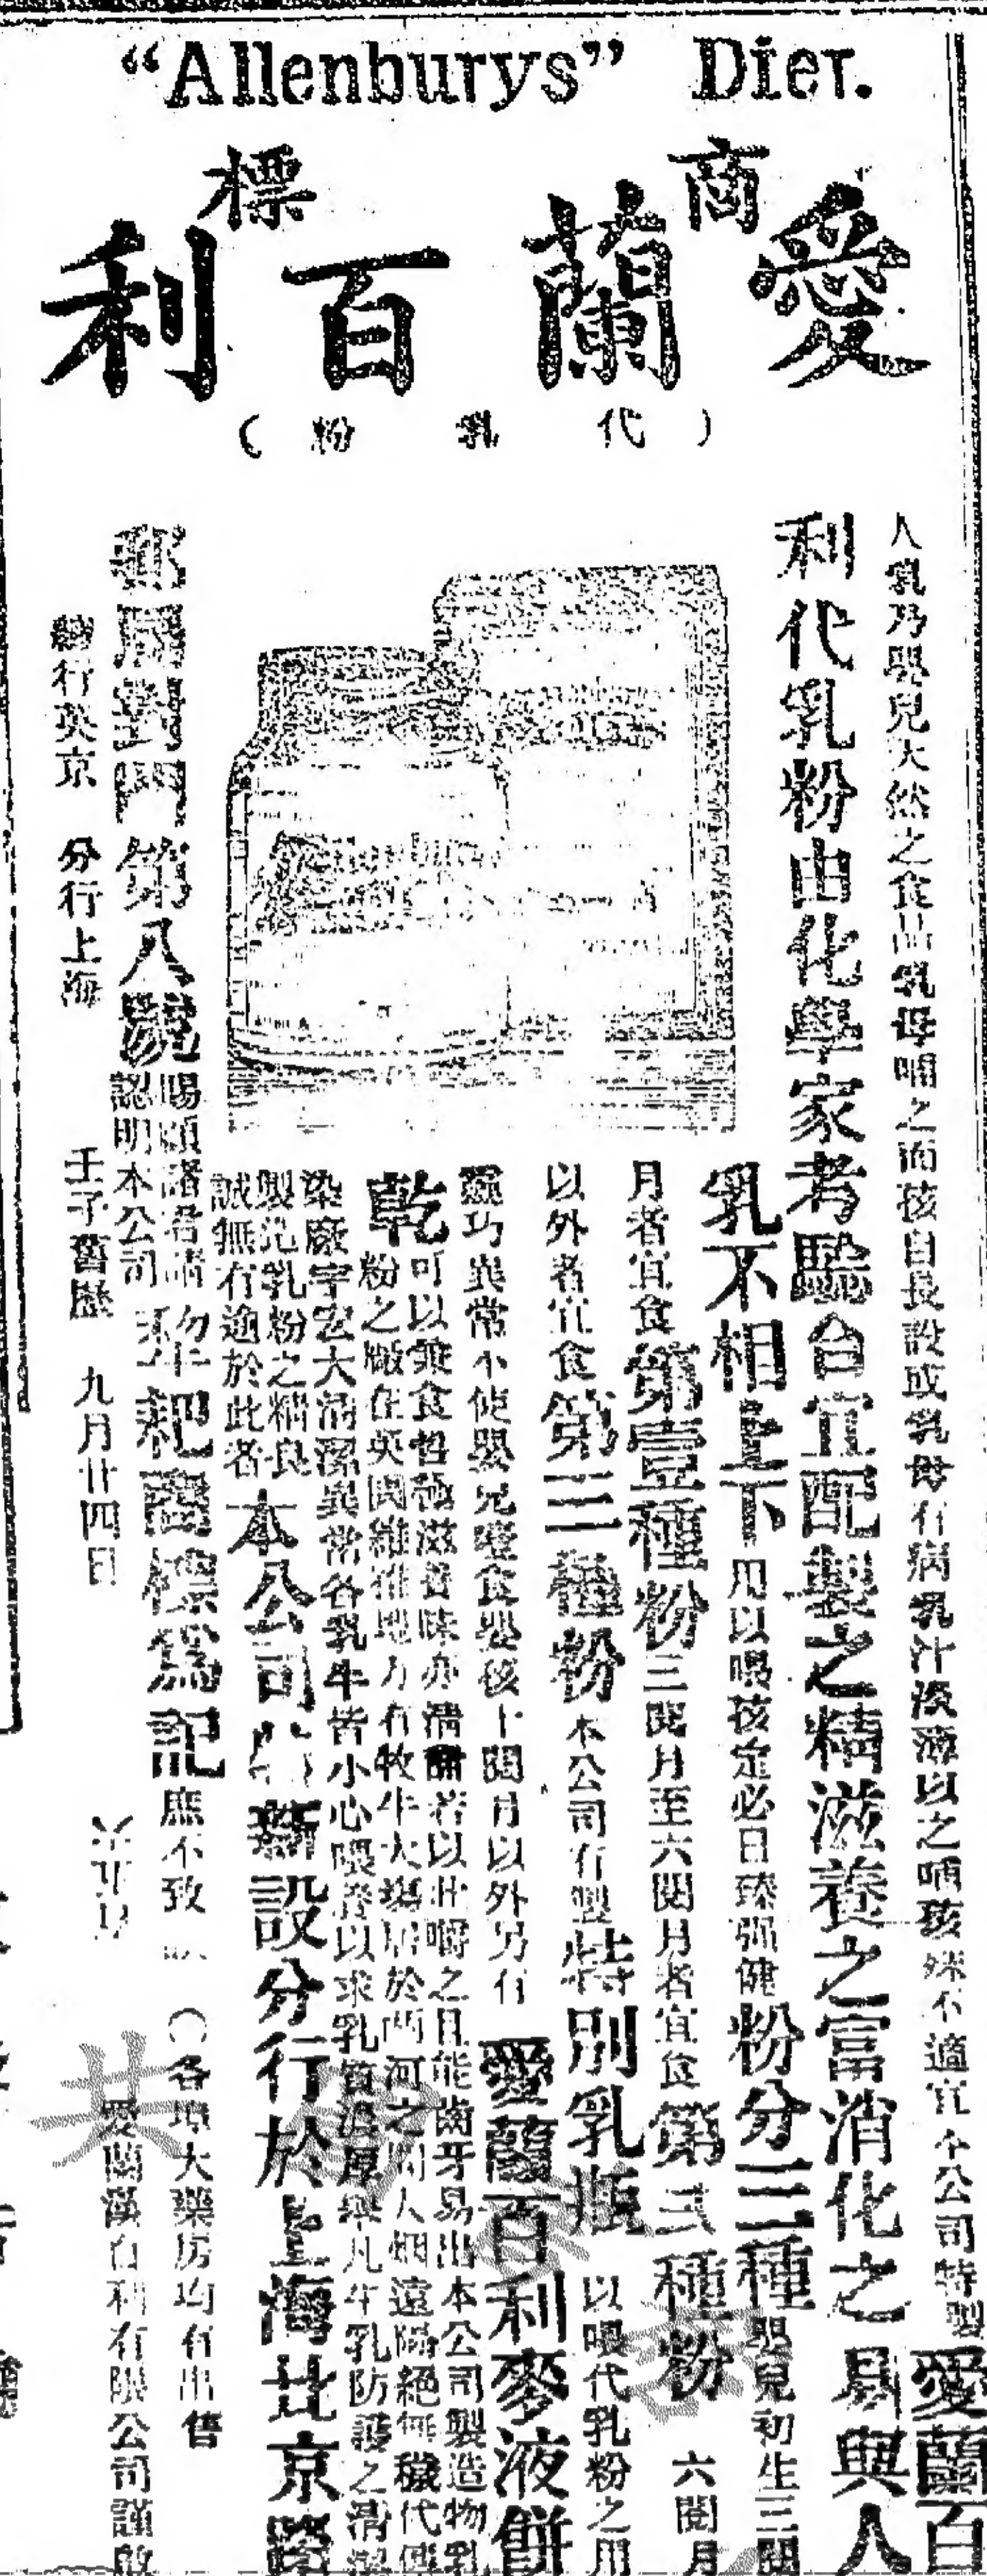 “Allenburys” Diet.
商標
愛蘭百利
（代乳粉）
人乳乃嬰兒天然之食品乳母哺之而孩自長設或乳母有病乳汁淡薄以之哺孩殊不適宜本公司特製愛蘭百
利代乳粉由化學家考驗合宜配製之精滋養之富消化之易與人
乳不相上下用以喂孩定必日臻强健粉分三種嬰兒初生三閱
月者宜食第壹種粉三閱月至六閱月者宜食第弍種粉六閱月
以外者宜食第三種粉本公司有製特別乳瓶以喂代乳粉之用
靈巧異常不使嬰兒噎食嬰孩十閱月以外另有愛蘭百利麥液餅
乾可以兼食性極滋養味亦清 若以此嚼之且能齒牙易出本公司製造物乳
粉之廠在英國 地方有牧牛大塲居於兩河之間人烟遠隔絕無穢
染廠宇宏大清潔異常各乳牛皆小心喂養以求乳質濃厚舉凡牛乳防護之清潔
製兒乳粉之精良
誠無有逾於此者本公司 新設分行於上海北京路
郵局對門第八號賜顧諸君請
認明本公司 犂耙商標爲記庶不致（各埠大藥房均有出售
總行英京 分行上海 壬子舊歷 九月廿四日 愛蘭漢百利有限公司謹啟